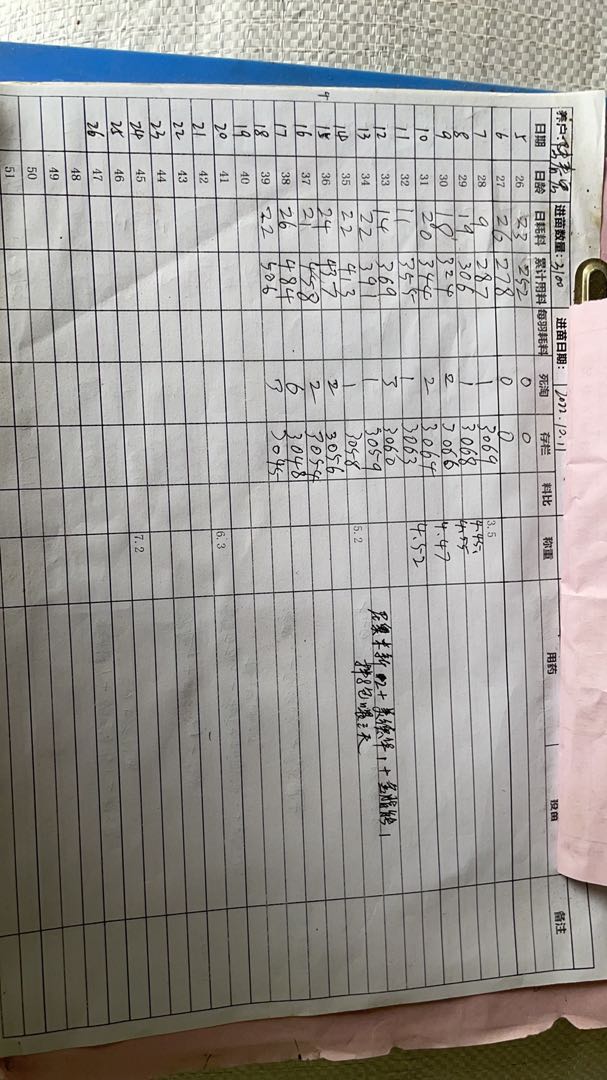 养户: 进苗数量: 3100 进苗日期: 2022.12.11
日期 日龄 日耗料 累计用料 每羽耗料 死淘 存栏 料比 称重 用药 投苗 备注
5 26 23 252 0 0
6 27 26 278 0 0
7 28 9 287 1 3069 3.5 4.45
8 29 19 306 1 3068 4.55
9 30 18 324 2 3066 4.47
10 31 20 344 2 3064 4.52
11 32 11 355 1 3063
12 33 14 369 3 3060
13 34 22 391 1 3059
14 35 22 413 1 3058 5.2
15 36 24 437 2 3056
16 37 21 458 2 3054
17 38 26 484 6 3048
18 39 22 506 3 3045
19 40
20 41 6.3
21 42
22 43
23 44
24 45 7.2
25 46
26 47
48
49
50
51